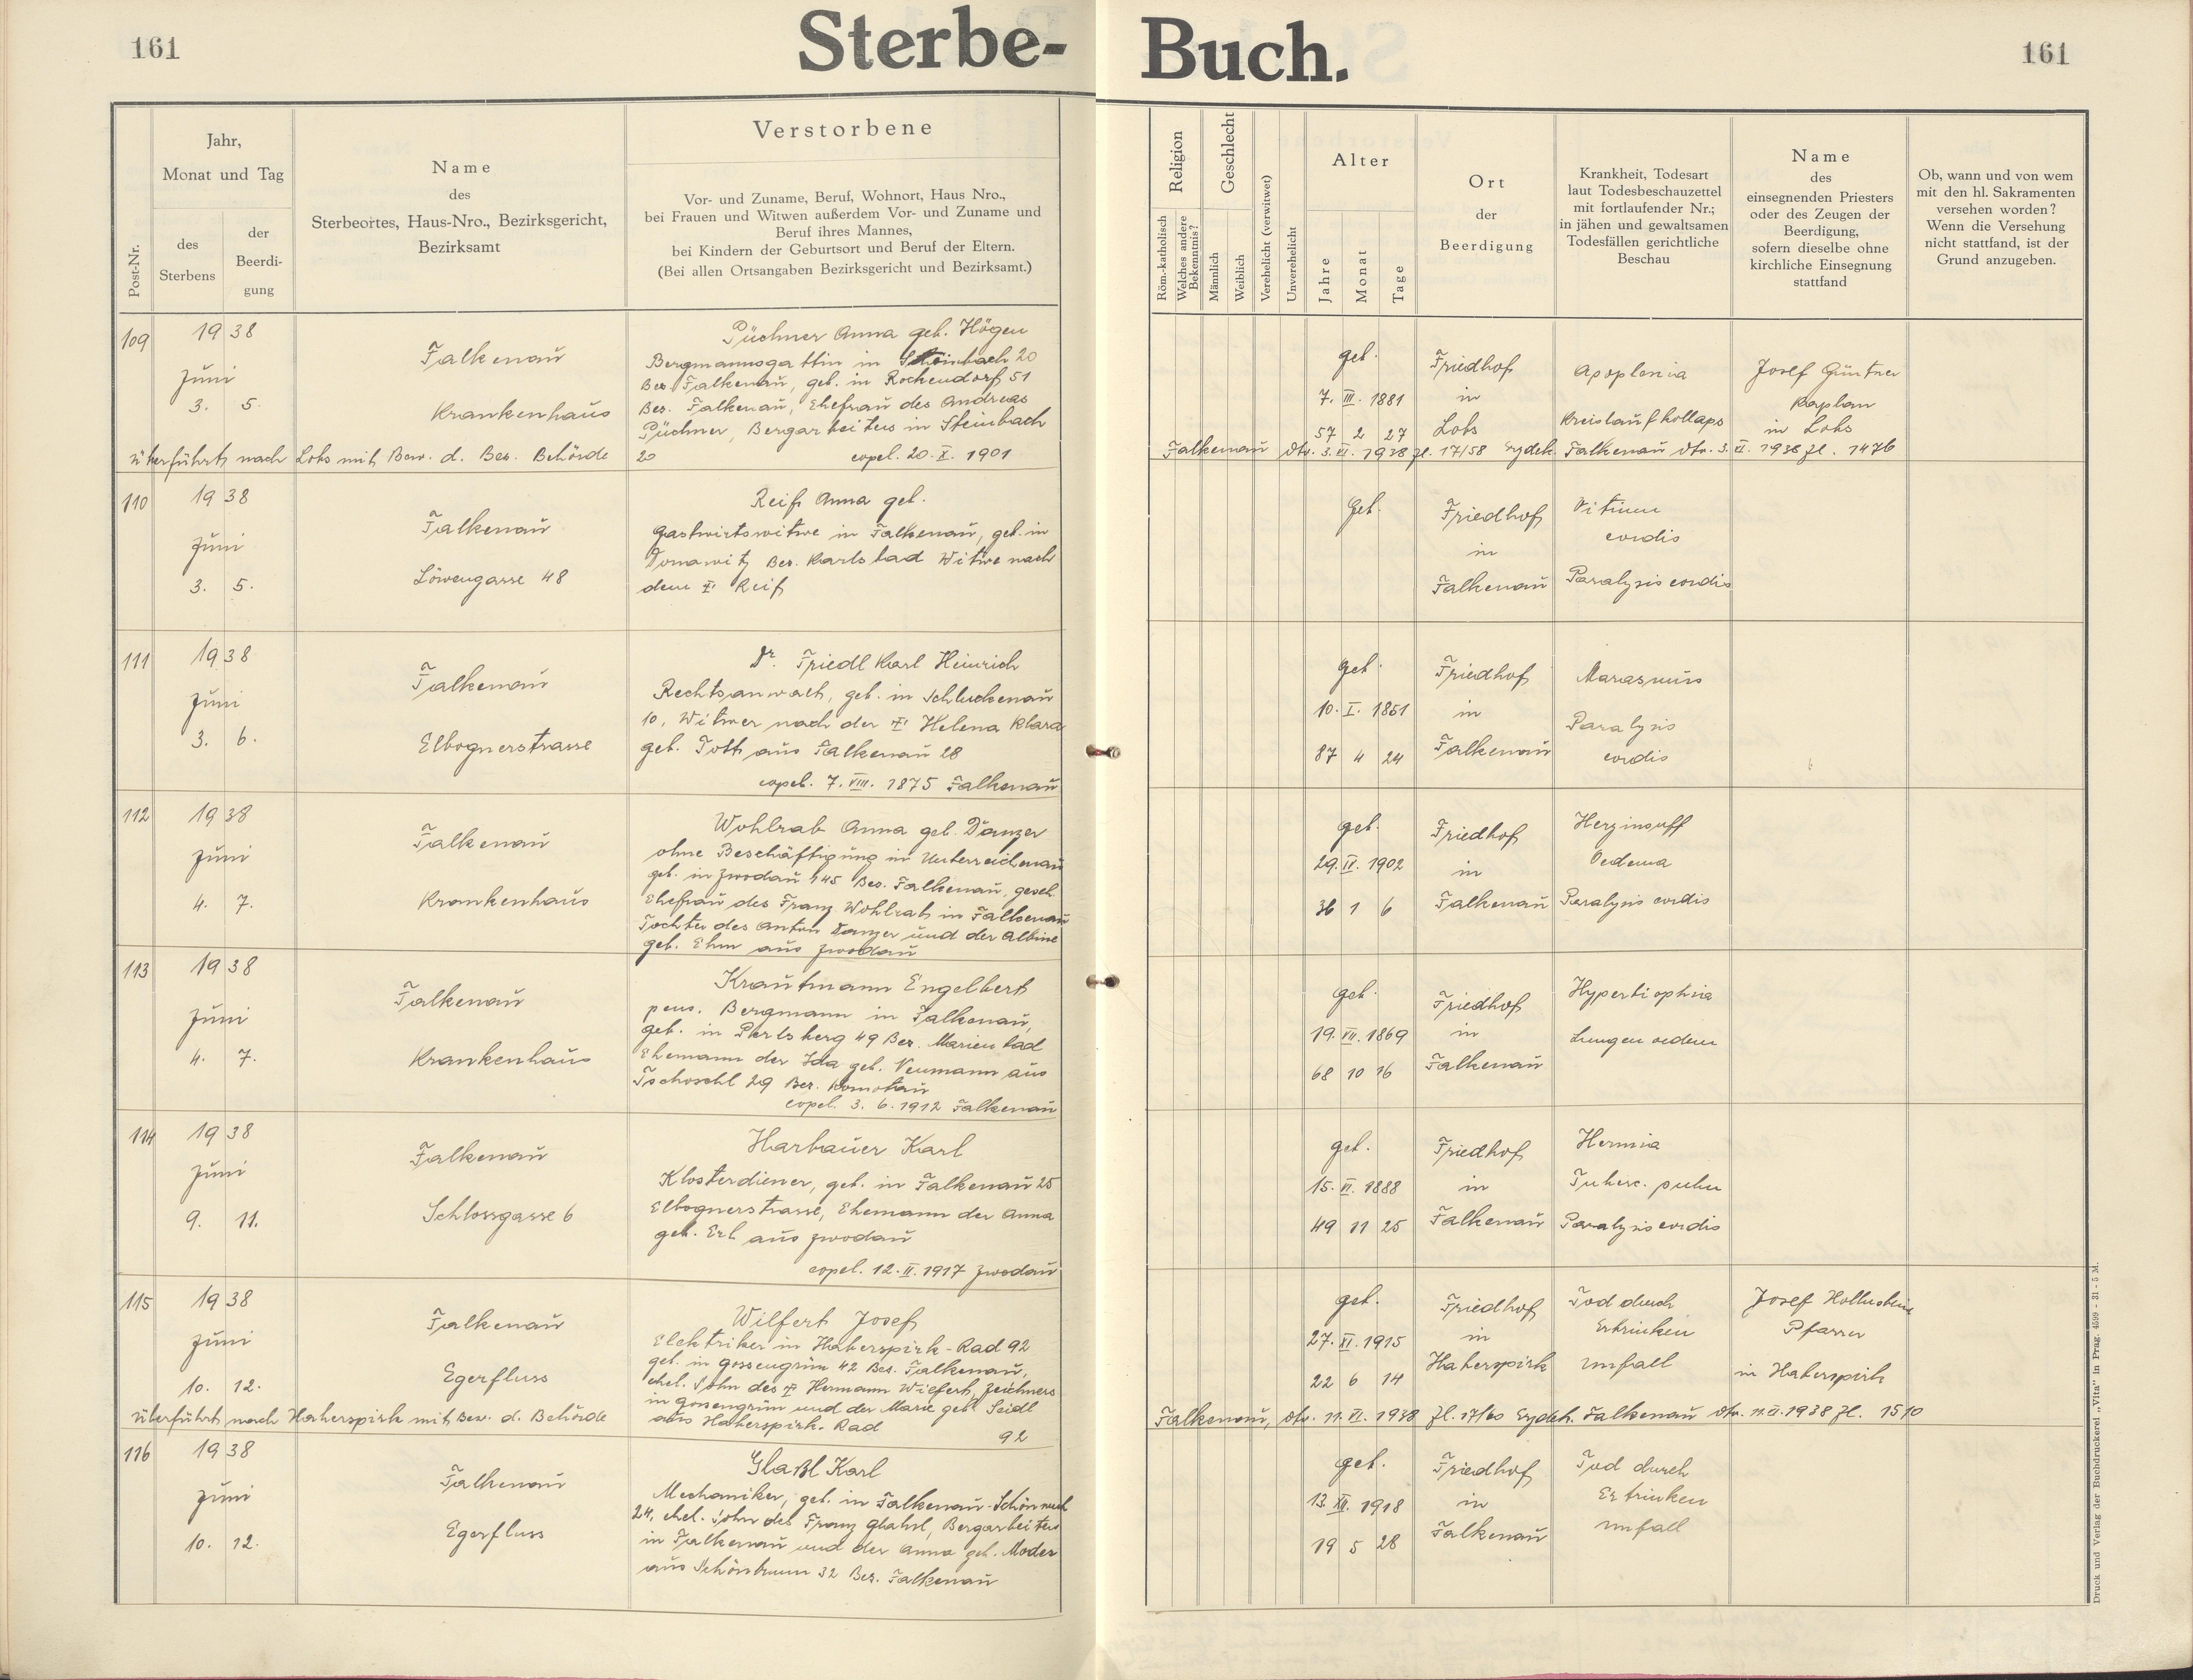 161
Sterbe-Buch.
161
Post-Nr.
Jahr,
Monat und Tag
des
Sterbens
der
Beerdi-
gung
Name
des
Sterbeortes, Haus-Nro., Bezirksgericht,
Bezirksamt
Verstorbene
Vor- und Zuname, Beruf, Wohnort, Haus Nro.,
bei Frauen und Witwen außerdem Vor- und Zuname und
Beruf ihres Mannes,
bei Kindern der Geburtsort und Beruf der Eltern.
(Bei allen Ortsangaben Bezirksgericht und Bezirksamt.)
Religion
Röm.-katholisch
Welches andere
Bekenntnis?
Geschlecht
Männlich
Weiblich
Verehelicht (verwitwet)
Unverehelicht
Alter
Jahre
Monat
Tage
Ort
der
Beerdigung
Krankheit, Todesart
laut Todesbeschauzettel
mit fortlaufender Nr.;
in jähen und gewaltsamen
Todesfällen gerichtliche
Beschau
Name
des
einsegnenden Priesters
oder des Zeugen der
Beerdigung,
sofern dieselbe ohne
kirchliche Einsegnung
stattfand
Ob, wann und von wem
mit den hl. Sakramenten
versehen worden?
Wenn die Versehung
nicht stattfand, ist der
Grund anzugeben.
109
1938
Juni
3. 5.
Falkenau
Krankenhaus
Püchner Anna geb. Högen
Bergmannsgattin in Steinbach 20
Bez. Falkenau, geb. in Rockendorf 51
Bez. Falkenau, Ehefrau des Andreas
Püchner, Bergarbeiters in Steinbach
20 copul. 20. X. 1901
geb.
7. III. 1881
57 2 27
Friedhof
in
Lobs
Apoplexia
Kreislaufkollaps
Josef Güntner
Kaplan
in Lobs
überführt nach Lobs mit Bew. d. Bez. Behörde
Falkenau dto. 3. VI. 1938 Zl. 17/58 Falkenau dto. 3. VI. 1938 Zl. 1476
110
1938
Juni
3. 5.
Falkenau
Löwengasse 48
Reif Anna geb.
Gastwirtswitwe in Falkenau, geb. in
Donawitz Bez. Karlsbad Witwe nach
dem † Reif
geb.
Friedhof
in
Falkenau
Vitium
cordis
Paralysis cordis
111
1938
Juni
3. 6.
Falkenau
Elbognerstrasse
Dr. Friedl Karl Heinrich
Rechtsanwalt, geb. in Schluckenau
10, Witwer nach der † Helena Klara
geb. Tott aus Falkenau 28
copul. 7. VIII. 1875 Falkenau
geb.
10. I. 1851
87 4 24
Friedhof
in
Falkenau
Marasmus
Paralysis
cordis
112
1938
Juni
4. 7.
Falkenau
Krankenhaus
Wohlrab Anna geb. Danzer
ohne Beschäftigung in Unterreichenau
geb. in Zwodau 145 Bez. Falkenau, gesch.
Ehefrau des Franz Wohlrab in Falkenau
Tochter des Anton Danzer und der Albine
geb. Ehm aus Zwodau
geb.
29. IV. 1902
36 1 6
Friedhof
in
Falkenau
Herzinsuff
Oedema
Paralysis cordis
113
1938
Juni
4. 7.
Falkenau
Krankenhaus
Krautmann Engelbert
pens. Bergmann in Falkenau,
geb. in Perlsberg 49 Bez. Marienbad
Ehemann der Ida geb. Neumann aus
Tschoschl 29 Bez. Komotau
copul. 3. 6. 1912 Falkenau
geb.
19. VII. 1869
68 10 16
Friedhof
in
Falkenau
Lungenoedem
114
1938
Juni
9. 11.
Falkenau
Schlossgasse 6
Harbauer Karl
Klosterdiener, geb. in Falkenau 25
Elbognerstrasse, Ehemann der Anna
geb. Erl aus Zwodau
copul. 12. II. 1917 Zwodau
geb.
15. VI. 1888
49 11 25
Friedhof
in
Falkenau
Hernia
Tuberc. pulm
Paralysis cordis
115
1938
Juni
10. 12.
Falkenau
Egerfluss
Wilfert Josef
Elektriker in Haberspirk-Rad 92
geb. in Gossengrün 42 Bez. Falkenau,
ehel. Sohn des † Hermann Wilfert, Zeichners
in Gossengrün und der Marie geb. Seidl
aus Haberspirk-Rad
92
geb.
27. XI. 1915
22 6 14
Friedhof
in
Haberspirk
Tod durch
Ertrinken
Unfall
Josef
Pfarrer
in Haberspirk
überführt nach Haberspirk mit Bew. d. Behörde
Falkenau, dto. 11. VI. 1938 Zl. 17/60 Falkenau dto. 11. VI. 1938 Zl. 1510
116
1938
Juni
10. 12.
Falkenau
Egerfluss
Glaßl Karl
Mechaniker, geb. in Falkenau-
24, ehel. Sohn des Franz Glahsl, Bergarbeiters
in Falkenau und der Anna geb. Moder
aus Schönbrunn 32 Bez. Falkenau
geb.
13. XII. 1918
19 5 28
Friedhof
in
Falkenau
Tod durch
Ertrinken
Unfall
Druck und Verlag der Buchdruckerei „Vita" in Prag. 4599 - 31 - 5 M.